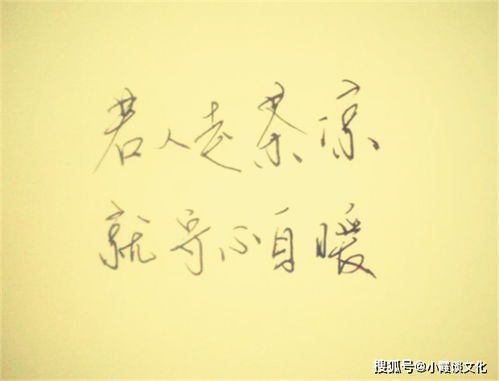 若人走茶凉
就守心自暖
搜狐号@小霞谈文化